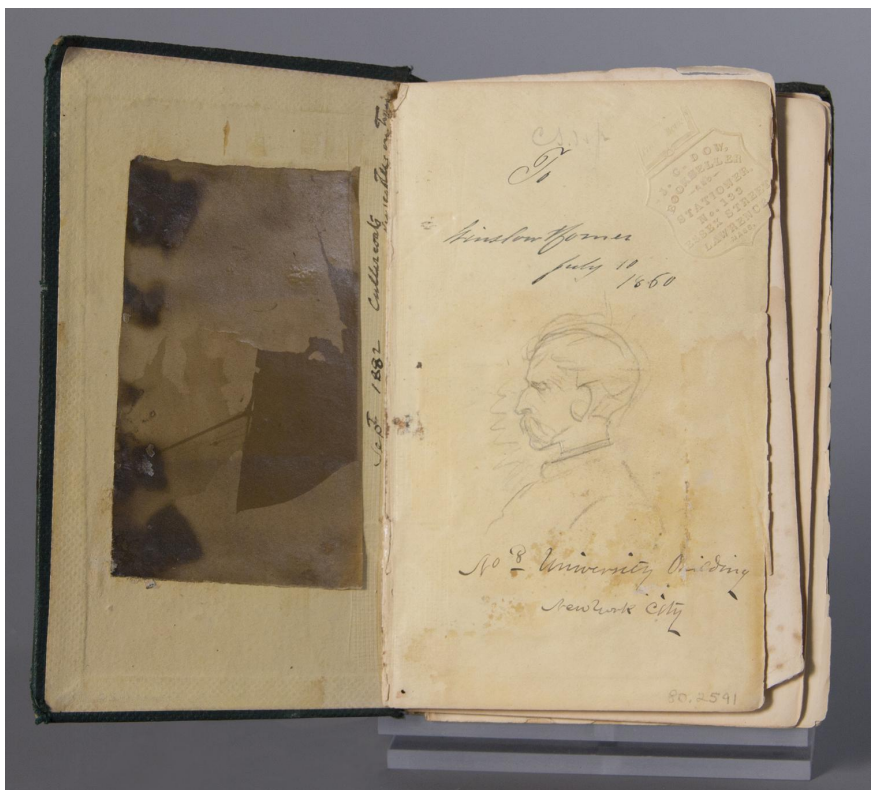 Sept 1882 Cullercoats
To
Winslow Homer
July 10
1860
J. C. DOW,
BOOKSELLER
AND
STATIONER,
No. 139
ESSEX STREET
LAWRENCE
MASS.
No 8 University Building
New York City
80.2591